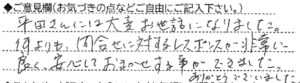 ◆ご意見欄(お気づきの点などご自由にご記入下さい。)
平田さんには大変お世話になりました。
何よりも、問合せに対するレスポンスが非常に
良く、安心しておまかせする事ができました。
ありがとうございました